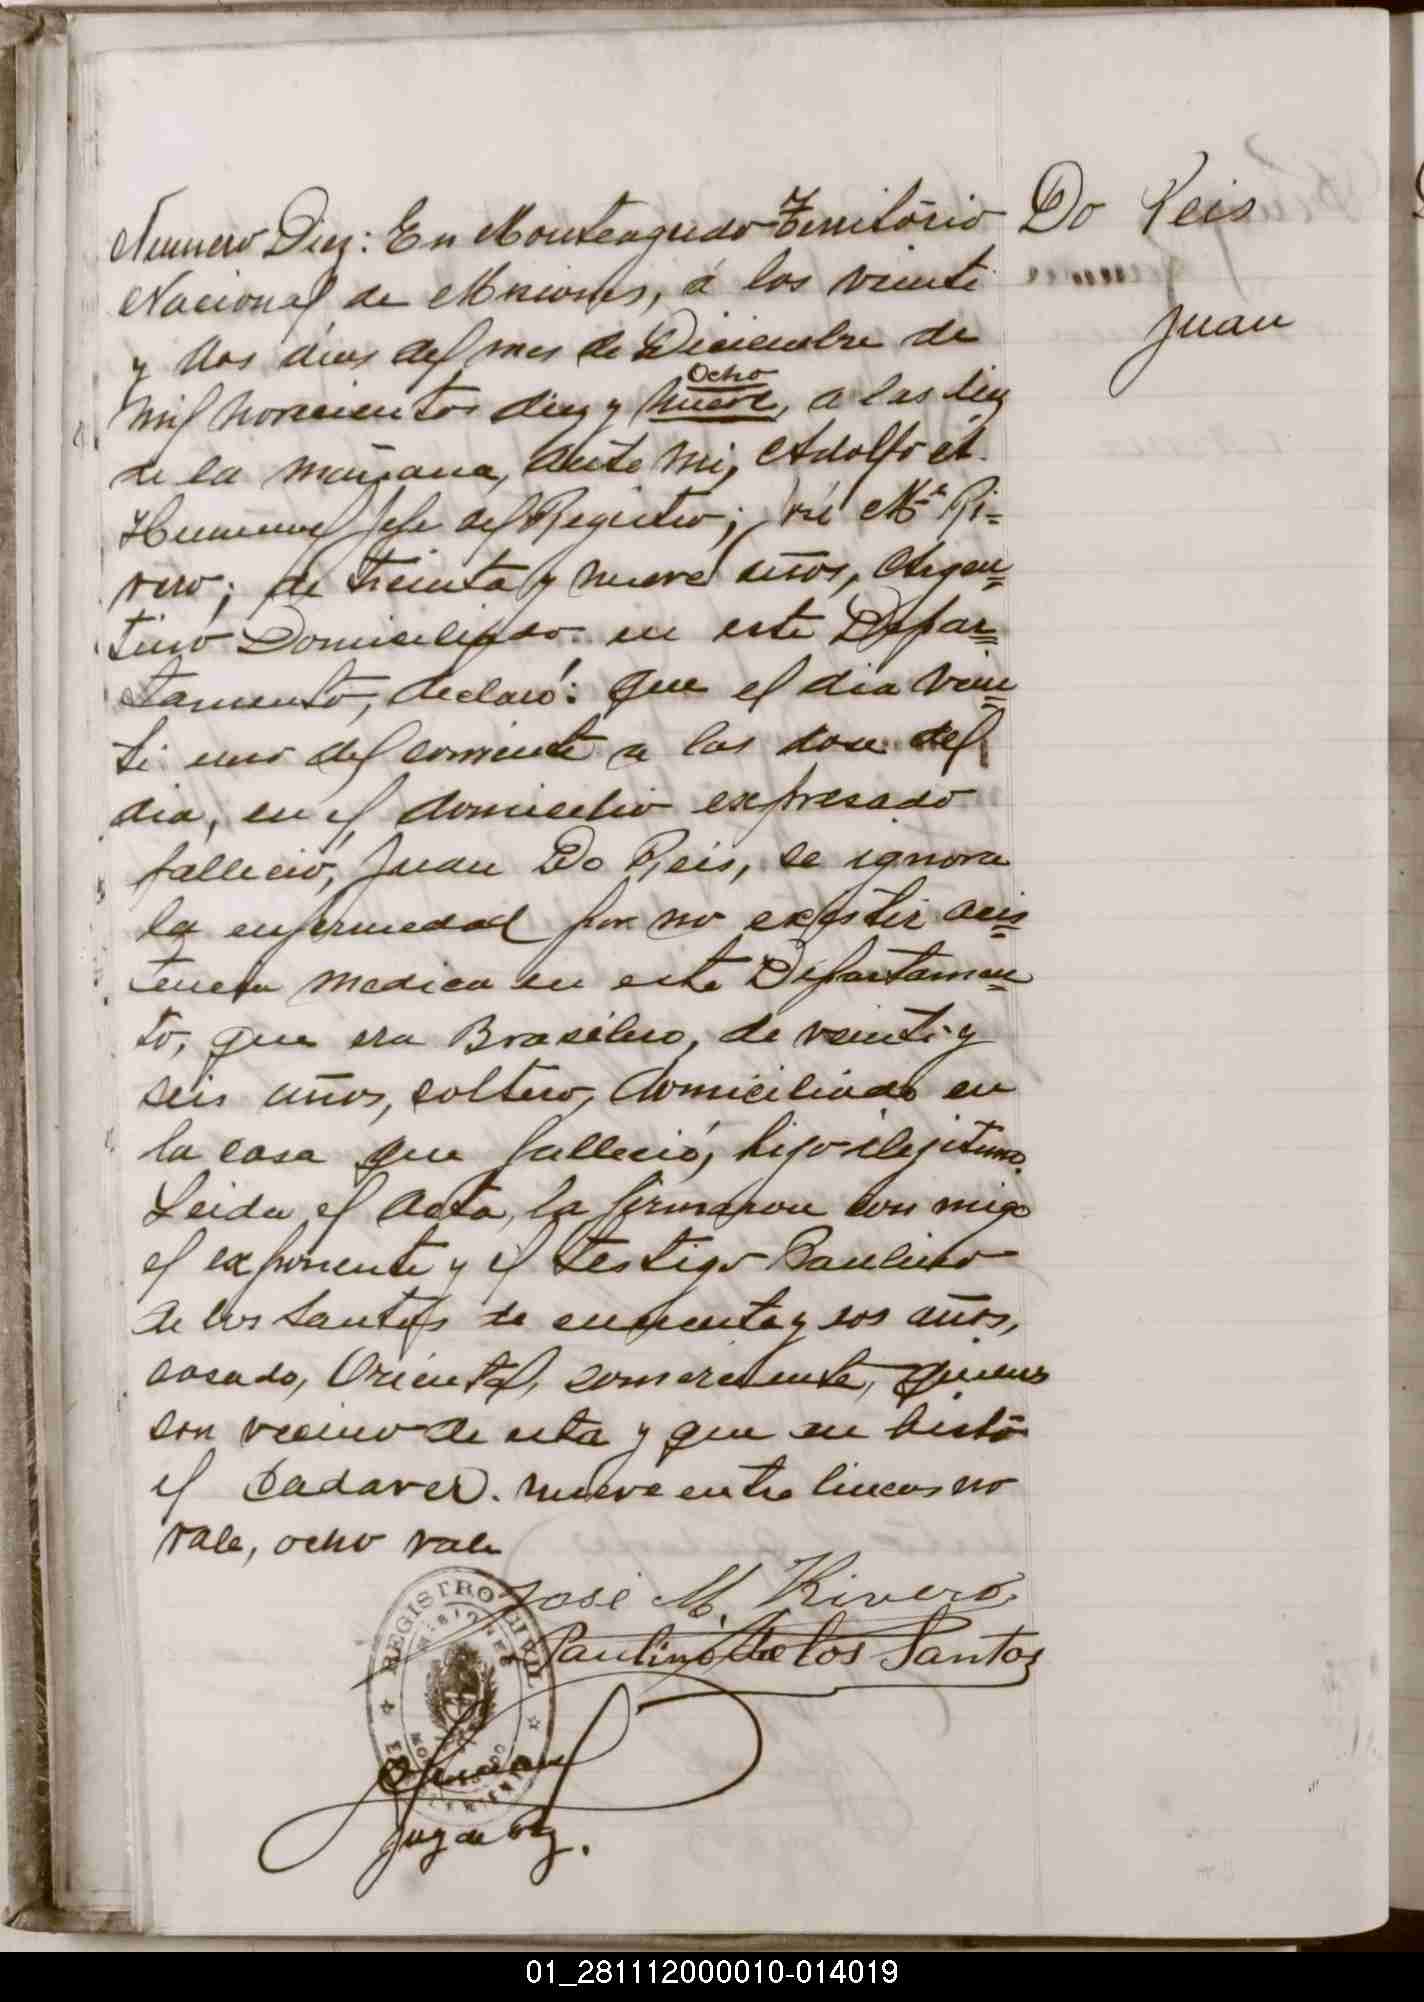 Numero Diez: En Monteagudo Territorio
Nacional de Misiones, á los veinte
y dos dias del mes de Diciembre de
ocho
mil novecientos diez y nueve, a las diez
de la mañana, ante mi, Adolfo A.
Jefe del Registro; José Mª Ri=
vero; de treinta y nueve años, Argen=
tino Domiciliado en este Depar=
tamento, declaró: que el dia vein=
ti uno del corriente a las doce del
dia, en el domicilio expresado
falleció, Juan Do Reis, se ignora
la enfermedad por no existir acis=
tencia medica en este Departamen=
to, que era Brasilero, de veinti y
seis años, soltero, domiciliado en
la casa que falleció, hijo ilejitimo.
Leida el acta, la firmaron con migo
el exponente y el testigo Paulino
de los Santos de cincuenta y dos años,
casado, Oriental, comerciante, quienes
son vecino de esta y que an bisto
el Cadaver. nueve entre lineas no
vale, ocho vale
José M. Rivero
Paulino de los Santos
Juez de Paz.
Do Reis
Juan
REGISTRO CIVIL
MISIONES
01_281112000010-014019